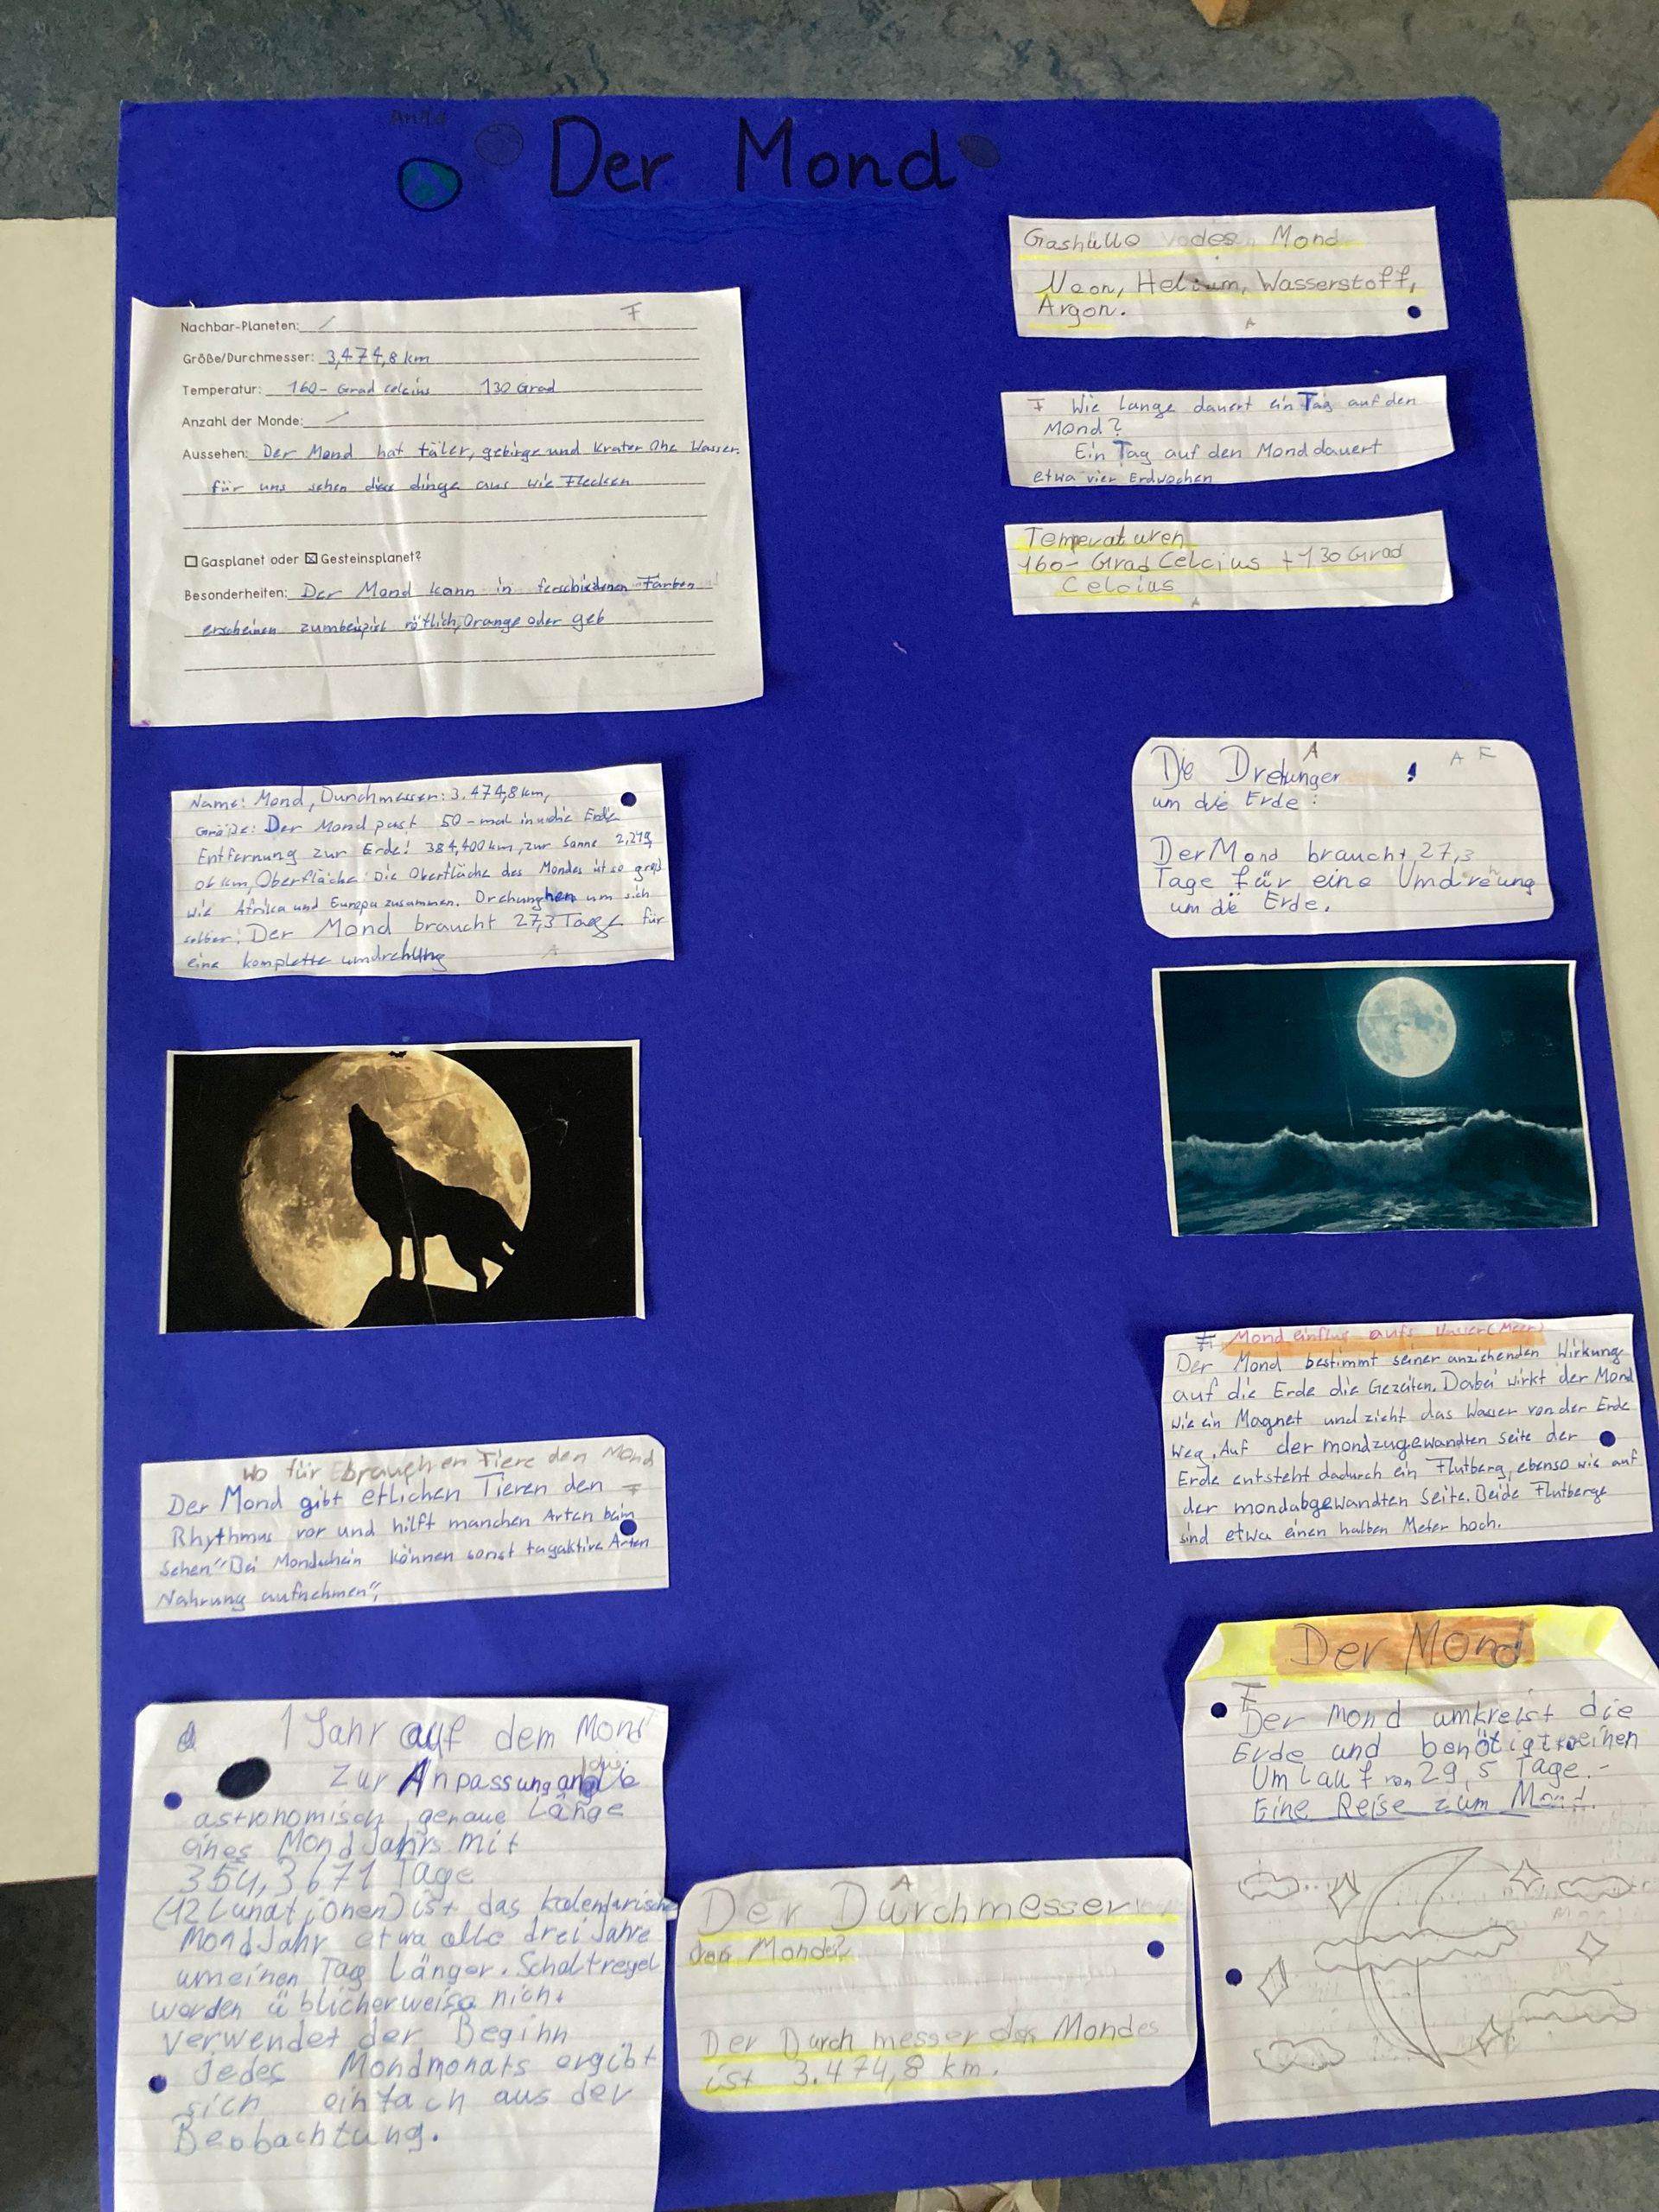 Der Mond
Nachbar-Planeten:
F
Größe/Durchmesser: 3,474,8 km
Temperatur: 160- Grad celcius 130 Grad
Anzahl der Monde:
Aussehen: Der Mond hat täler, gebirge und Krater Ohe Wasser.
für uns sehen dies dinge aus wie Flecken
Gasplanet oder Gesteinsplanet?
Besonderheiten: Der Mond kann in ferschiedenen Farben
erscheinen zumbeispiel rötlich, Orange oder gelb
Name: Mond, Durchmesser: 3.474,8 km,
Größe: Der Mond past 50-mal in die Erde
Entfernung zur Erde: 384,400 km, zur Sonne
km, Oberfläche: Die Oberfläche des Mondes ist so groß
wie Afrika und Europa zusammen. Drehunghen um sich
selber: Der Mond braucht 27,3 Tage für
eine komplette umdrehung
A
wo für brauchen Tiere den Mond
Der Mond gibt etlichen Tieren den F
Rhythmus vor und hilft manchen Arten beim
Sehen "Bei Mondschein können sonst tagaktive Arten
Nahrung aufnehmen",
1 Jahr auf dem Mond
Zur Anpassung an die
astronomisch genaue Länge
eines MondJahrs mit
354,3671 Tage
(12 Lunationen) ist das kalendarische
MondJahr etwa alle drei Jahre
umeinen Tag Länger. Schaltregel
werden üblicherweise nicht
verwendet der Beginn
Jedes Mondmonats ergibt
sich einfach aus der
Beobachtung.
A
Der Durchmesser
des Mondes?
Der Durch messer des Mondes
ist 3.474,8 km.
Gashülle des Mond
Neon, Helium, Wasserstoff,
Argon.
A
F Wie lange dauert ein Tag auf den
Mond?
Ein Tag auf den Mond dauert
etwa vier Erdwochen
Temperaturen
160- Grad Celcius + 130 Grad
Celcius
A
A
A F
Die Drehunger
um die Erde:
Der Mond braucht 27,3
Tage für eine Umdrehung
um die Erde.
F Mond einflus aufs Wasser (Meer)
Der Mond bestimmt seiner anziehenden Wirkung
auf die Erde die Gezeiten. Dabei wirkt der Mond
wie ein Magnet und zieht das Wasser von der Erde
weg. Auf der mondzugewandten Seite der
Erde entsteht dadurch ein Flutberg, ebenso wie auf
der mondabgewandten Seite. Beide Flutberge
sind etwa einen halben Meter hoch.
Der Mond
F
Der mond umkreist die
Erde und benötigt einen
Umlauf von 29,5 Tage.-
Eine Reise zum Mond.